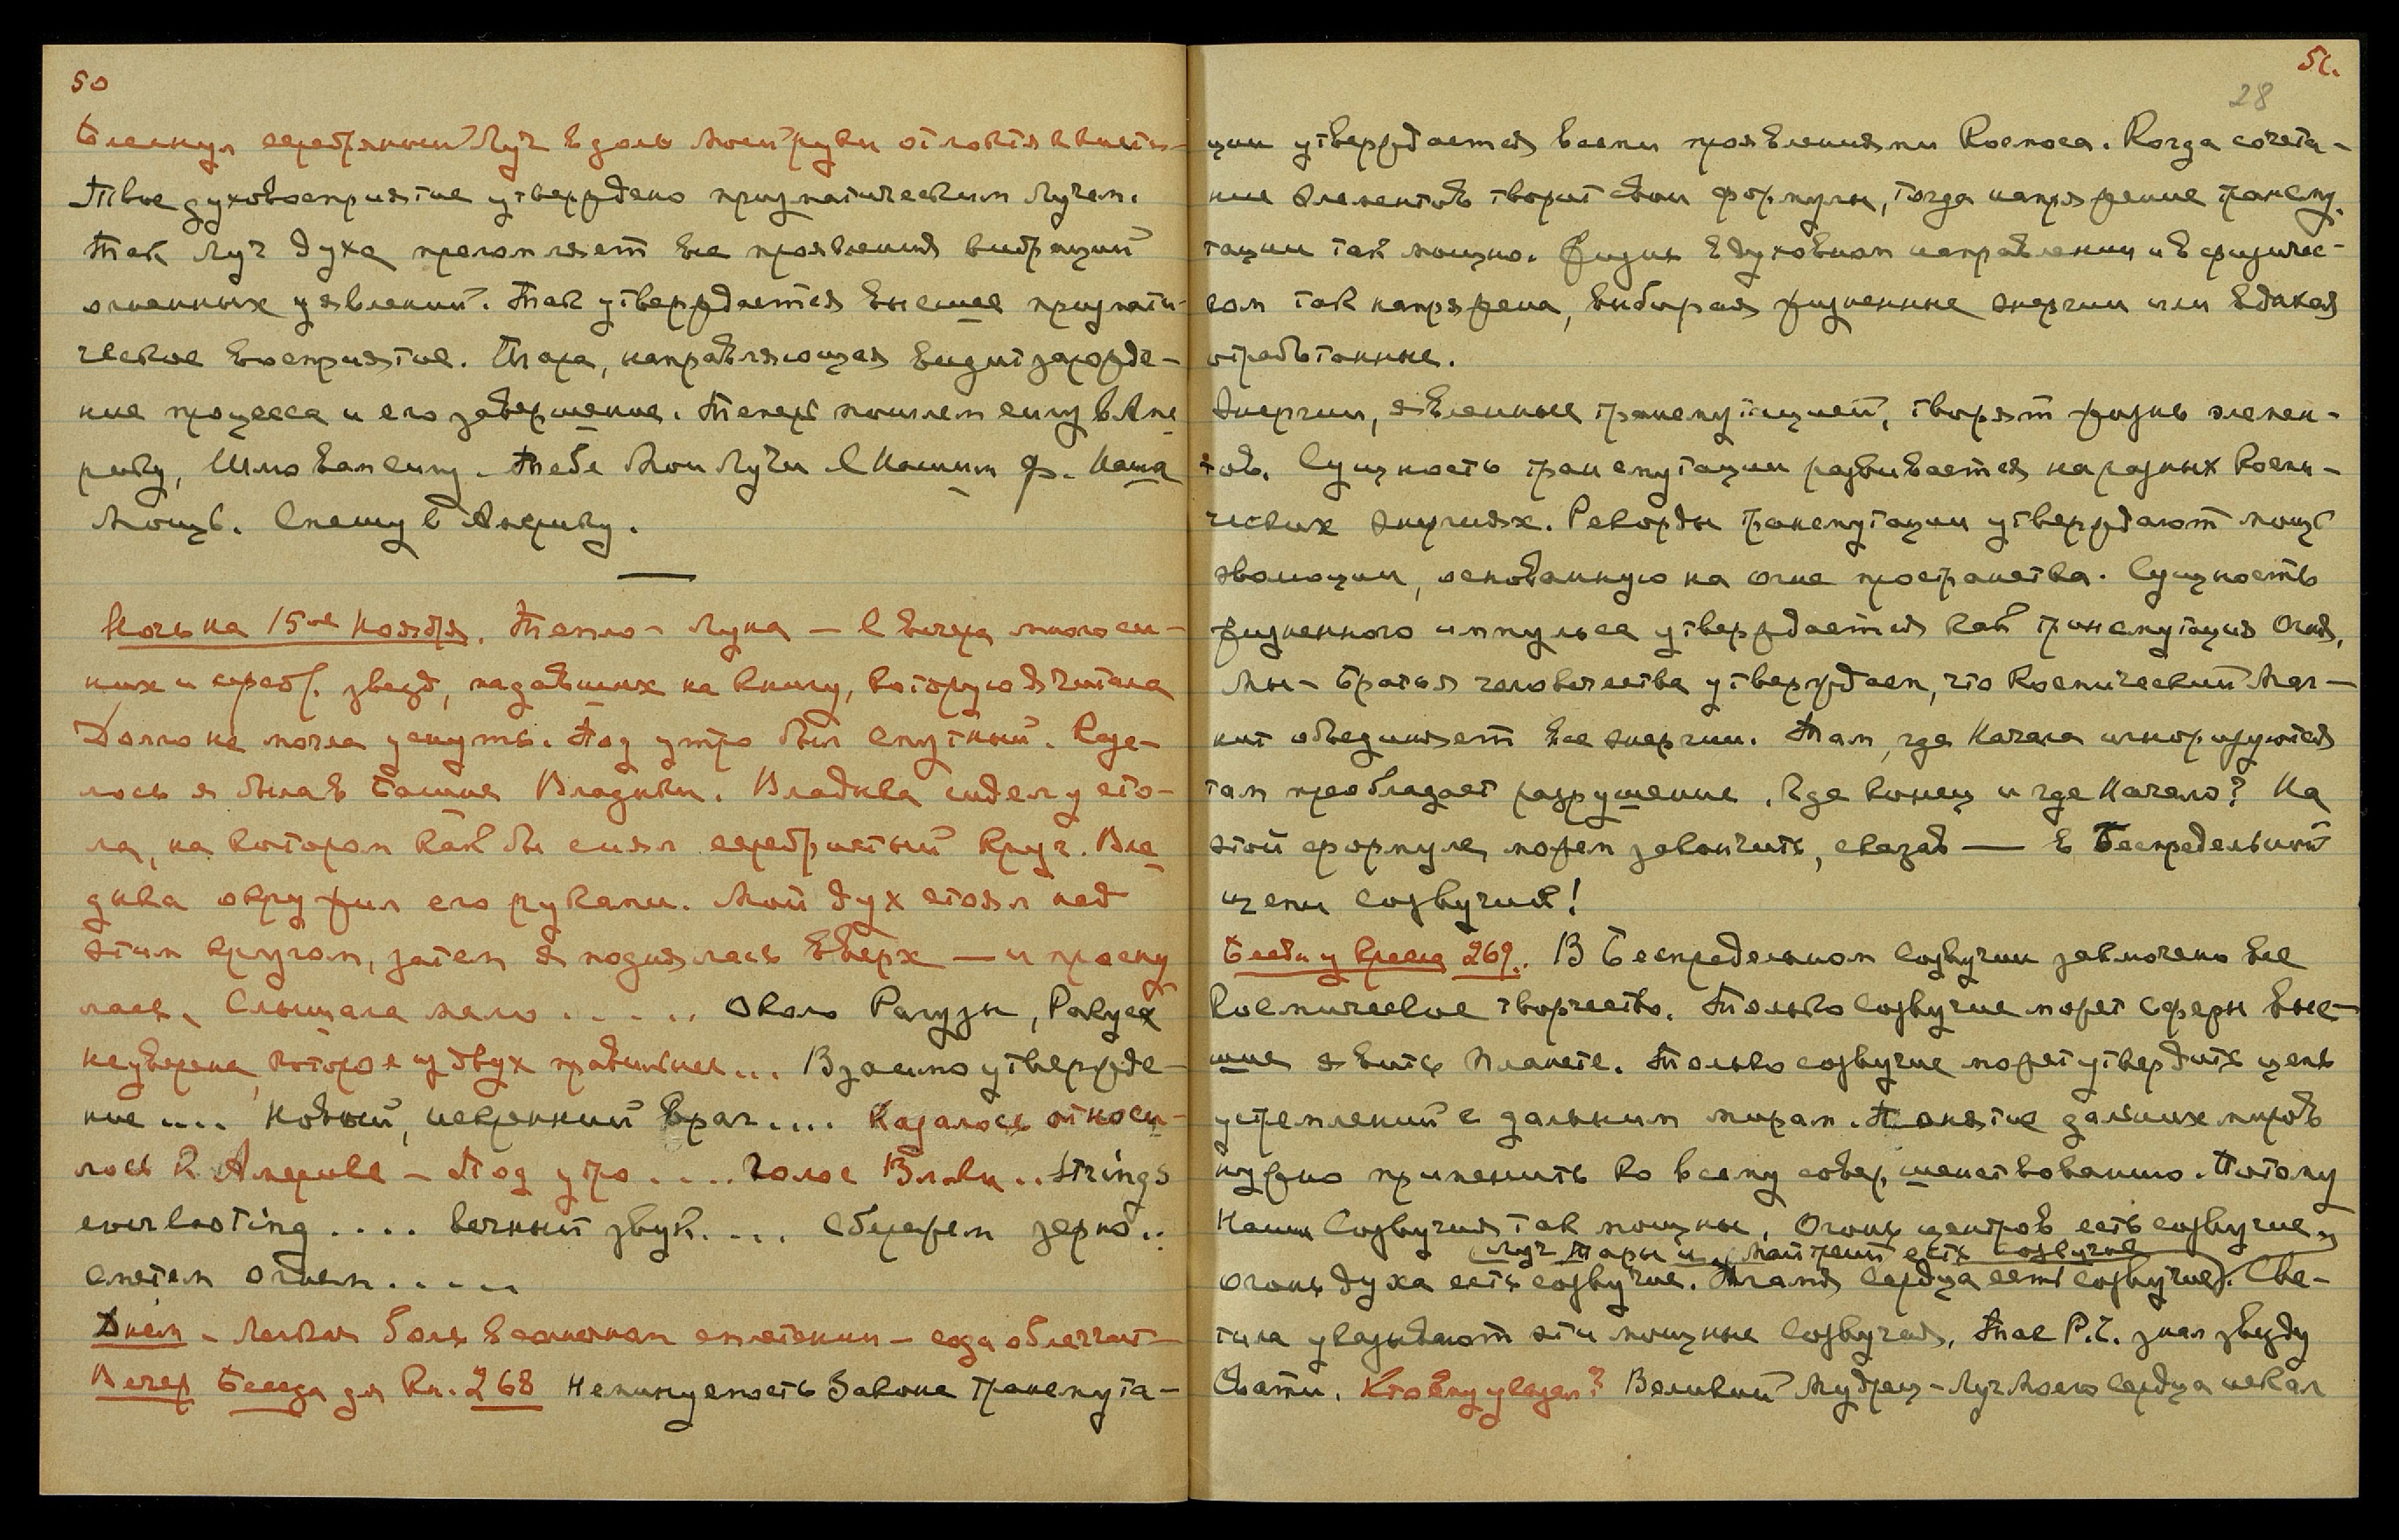 50
Блеснул серебряный Луч вдоль моей руки от локтя к кисти –
Твое духовосприятие утверждено призматическим Лучем.
Так Луч духа преломляет все проявления вибраций
огненных уявлений. Так утверждается высшее призмати-
ческое восприятие. Тара, направляющая видит зарожде-
ние процесса и его завершение. Теперь пошлем силу в Аме
рику, Шлю вам силу. Тебе Мои Лучи с Нашим Ф. Наша
Мощь. Спешу в Америку.
Ночь на 15ое Ноября. Тепло – Луна – С вечера много си-
них и сереб. звезд, падавших на книгу, которую я читала
Долго не могла уснуть. Под утро был спутный. Каза-
лось я была в Башне Владыки. Владыка сидел у сто-
ла, на котором как бы сиял серебристый круг. Вла
дыка окружил его руками. Мой дух стоял над
этим кругом, затем я поднялась вверх — и просну
лась. Слышала мало . . . . . Около Рагузы, Ракуса
неуверена, которое из двух правильнее... Взаимоутвержде-
ние .... Новый, искренний враг.... Казалось относи-
лось к Америке – Под утро .... Голос Влад-ки .. Strings
everlasting .... вечный звук. ... Сбережем зерно..
сметем огнем.....
Днем – легкая боль в солнечном сплетении – сода облегчит –
Вечер Беседа для Кн. 268 Непинуемость Закона трансмута-
51.
28
ции утверждается всеми проявлениями Космоса. Когда сочета-
ние элементов творит свои формулы, тогда напряжение трансму
тации так мощно. Жизнь в духовном направлении и в физичес-
ком так напряжена, выбирая жизненные энергии или вдыхая
отработанные.
Энергии, явленные трансмутацией, творят жизнь элемен-
тов. Сущность трансмутации развивается на разных Косми-
ческих энергиях. Рекорды трансмутации утверждают мощь
эволюции, основанную на огне пространства. Сущность
жизненного импульса утверждается как трансмутация Огня,
Мы – Братья человечества утверждаем, что Космический Маг-
нит объединяет все энергии. Там, где Начала игнорируются
там преобладает разрушение. Где конец и где Начало? На
этой формуле можем закончить, сказав — в Беспредельной
цепи Созвучий!
Беседа у кресла 269. В Беспредельном Созвучии заключено все
Космическое творчество. Только Созвучие может сферы выс-
шие явить планете. Только созвучие может утвердить цепь
устремлений с дальним мирам. Понятие дальних миров
нужно применить ко всему совершенствованию. Потому
Наши Созвучия так мощны, Огонь центров есть созвучие,
(Луч Тары и Матрейи есть созвучие
огонь духа есть созвучие. Пламя Сердца есть созвучие). Све-
тила увязывают эти мощные Созвучия, Так Р.С. знал звезду
Свати. Кто Ему указал? Великий Мудрец – Луч Моего Сердца искал